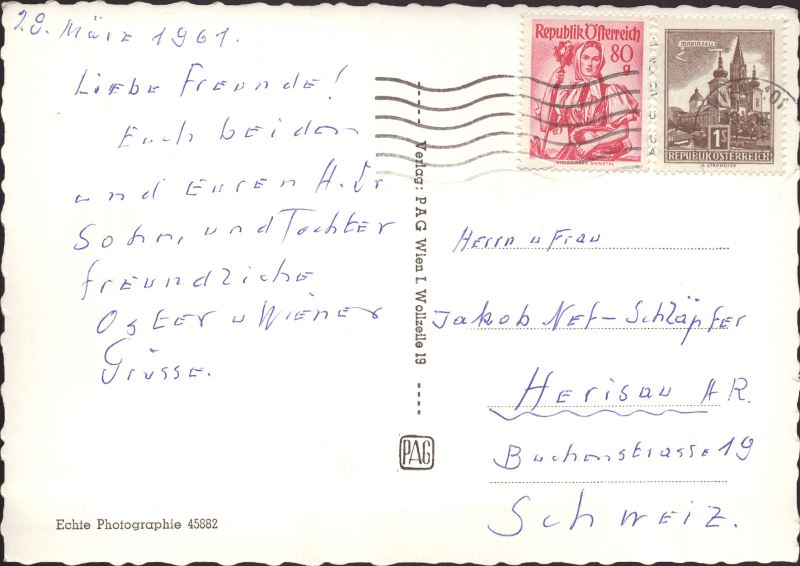 28. März 1961.
Liebe Freunde!
Euch beiden
und Euren H. Dr
Sohn, und Tochter
freundliche
Oster u Wiener
Grüsse.
Echte Photographie 45882
Verlag: PAG Wien I. Wollzeile 19
PAG
Republik Österreich
80
g
MARIAZELL
1S
REPUBLIK ÖSTERREICH
Herrn u Frau
Jakob Nef-Schläpfer
Herisau AR.
Buchenstrasse 19
Schweiz.